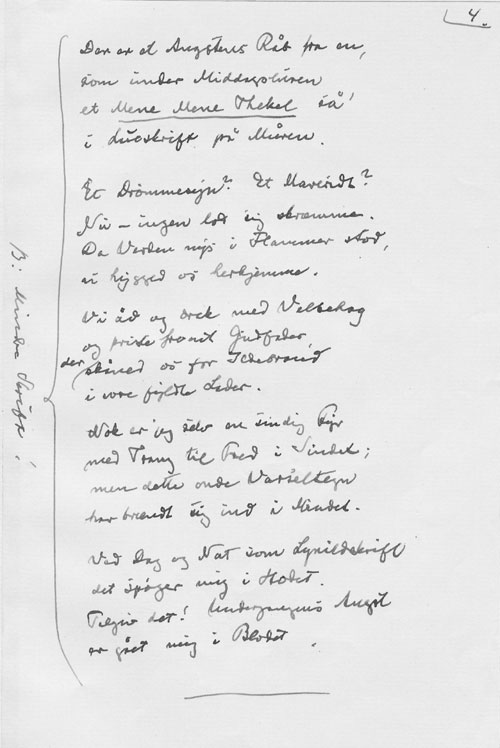 4.
Der er et Angstens Råb fra en,
som under Middagsluren
et Mene Mene Thekel så
i Lueskrift på Muren.
Et Drømmesyn? Et Mareridt?
Nu – ingen lod sig skræmme.
Da Verden nys i Flammer stod,
vi hygged os herhjemme.
Vi åd og drak med Velbehag
og priste fromt Gudfader,
der skåned os for Ildebrand
i vore fyldte Lader.
Nok er jeg selv en sindig Fyr
med Trang til Fred i Sindet;
men dette onde Varseltegn
har brændt sig ind i Mindet.
Ved Dag og Nat som Lynildskrift
det spøger mig i Hodet.
Tilgiv det! Undergangens Angst
er gået mig i Blodet.
B: Mindre Skrift!